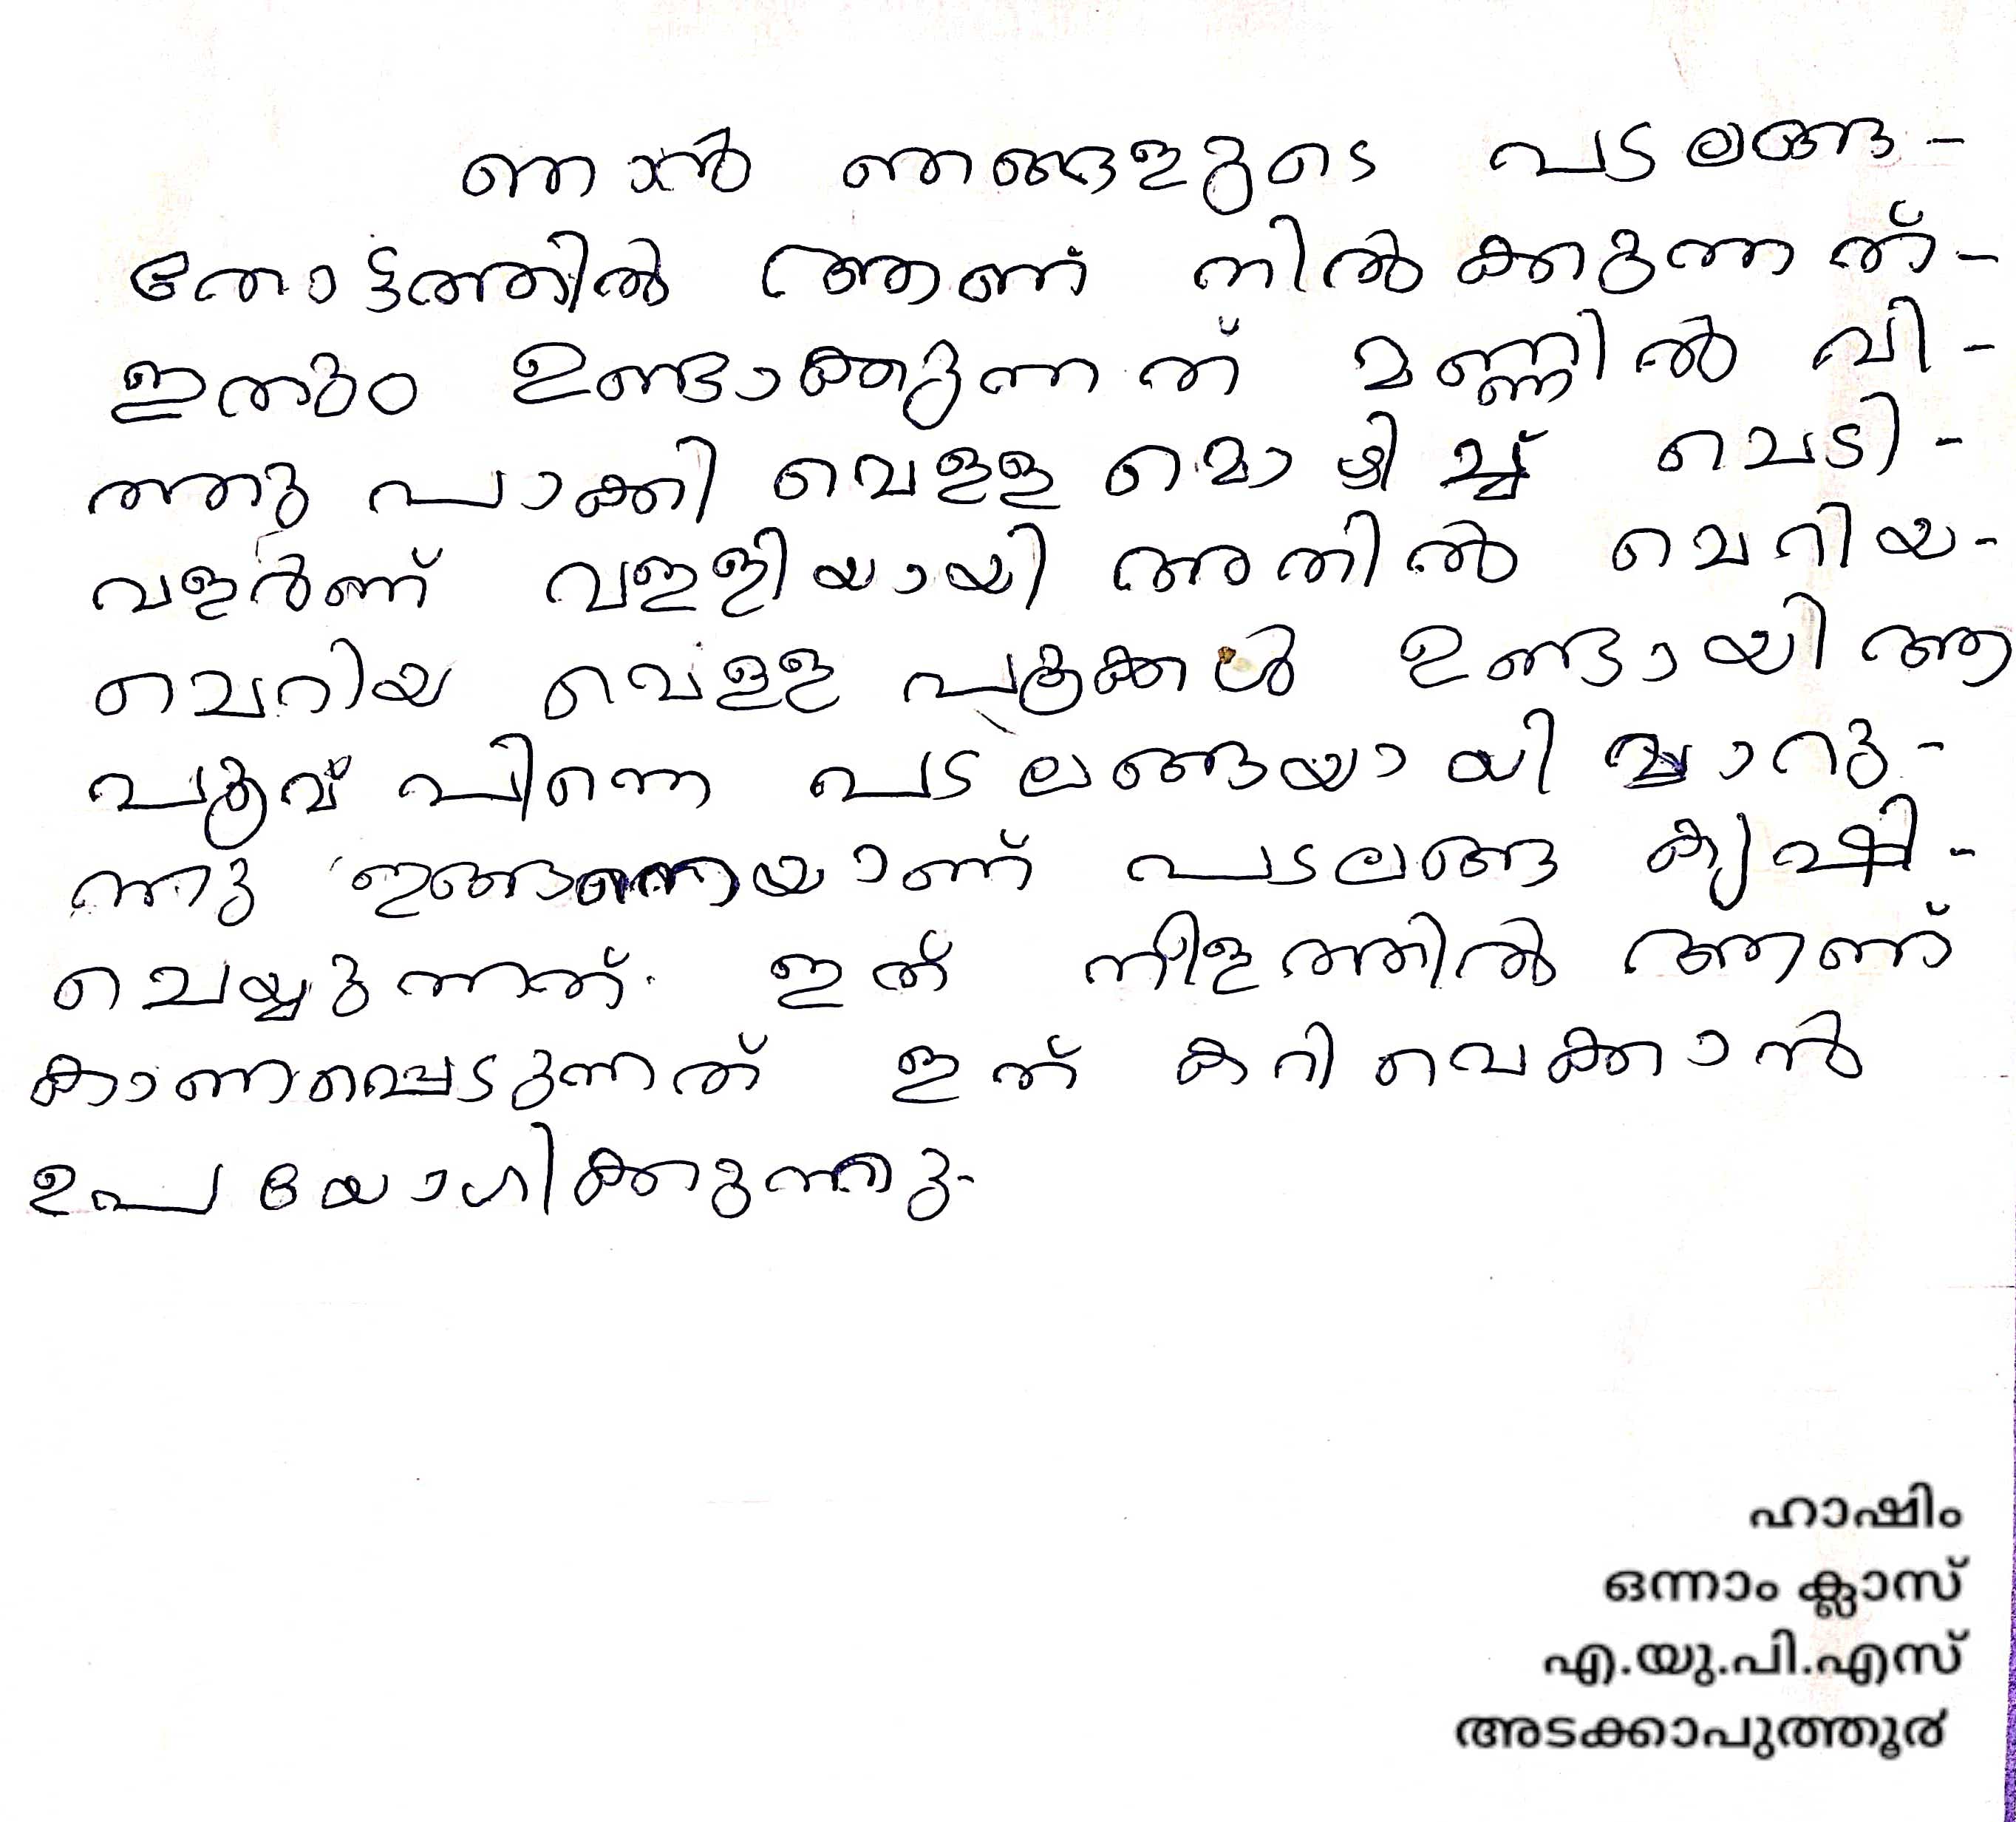 ഞാൻ ഞങ്ങളുടെ പടലങ്ങ-
തോട്ടത്തിൽ ആണ് നിൽക്കുന്നത്-
ഇതും ഉണ്ടാക്കുന്നത് മണ്ണിൽ വി-
ത്തു പാകി വെള്ളമൊഴിച്ച് ചെടി-
വളർന്ന് വള്ളിയായി അതിൽ ചെറിയ-
ചെറിയ വെള്ള പൂക്കൾ ഉണ്ടായി ആ
പൂവ് പിന്നെ പടലങ്ങയായി മാറു-
ന്നു ഇങ്ങനെയാണ് പടലങ്ങ കൃഷി-
ചെയ്യുന്നത്. ഇത് നീളത്തിൽ ആണ്
കാണപ്പെടുന്നത് ഇത് കറിവെക്കാൻ
ഉപയോഗിക്കുന്നു.
ഹാഷിം
ഒന്നാം ക്ലാസ്
എ.യു.പി.എസ്
അടക്കാപുത്തൂർ